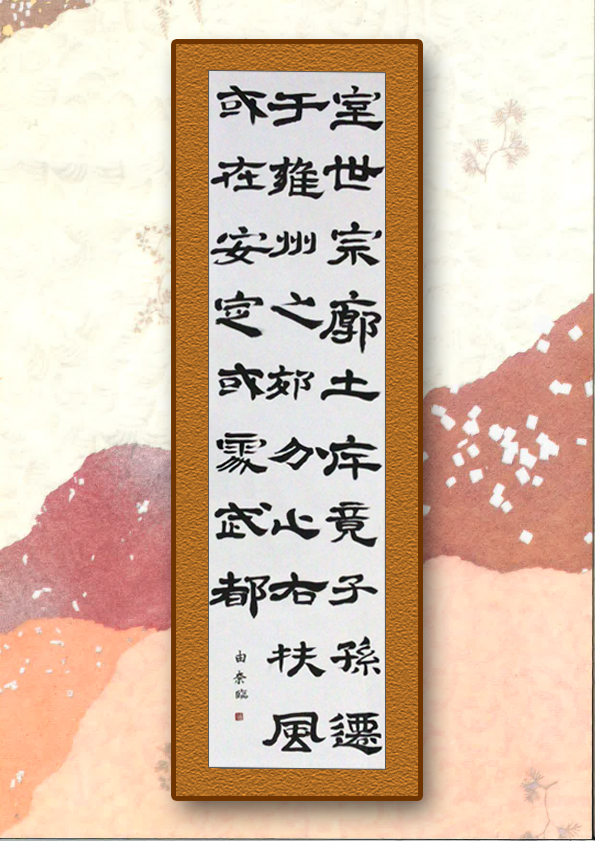 室世宗廓土斥竟子孫遷
于雍州之郊分止右扶風
或在安定或處武都
由奈臨